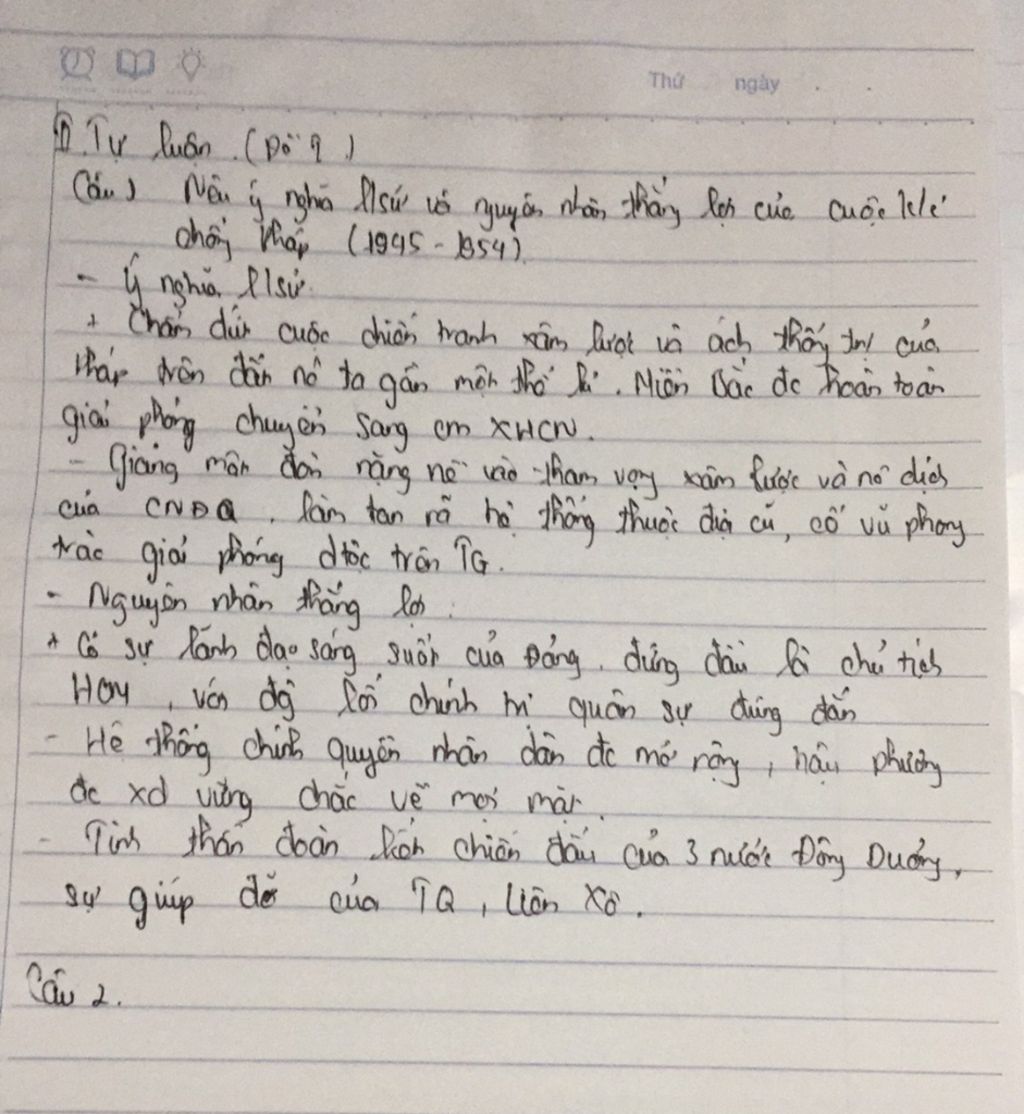 Thứ ngày
II. Tự luận. (Đề 9)
Câu 1 Nêu ý nghĩa l/sử và nguyên nhân thắng lợi của cuộc k/c
chống Pháp (1945 - 1954)
- Ý nghĩa l/sử.
+ Chấm dứt cuộc chiến tranh xâm lược và ách thống trị của
Pháp trên đất nc ta gần một thế kỉ. Miền Bắc đc hoàn toàn
giải phóng chuyển sang cm XHCN.
- Giáng một đòn nặng nề vào tham vọng xâm lược và nô dịch
của CNĐQ, làm tan rã hệ thống thuộc địa cũ, cổ vũ phong
trào giải phóng dtộc trên TG.
- Nguyên nhân thắng lợi:
+ Có sự lãnh đạo sáng suốt của Đảng, đứng đầu là chủ tịch
HCM, với đg lối chính trị quân sự đúng đắn
- Hệ thống chính quyền nhân dân đc mở rộng, hậu phương
đc xd vững chắc về mọi mặt.
- Tinh thần đoàn kết chiến đấu của 3 nước Đông Dương,
sự giúp đỡ của TQ, Liên Xô.
Câu 2.